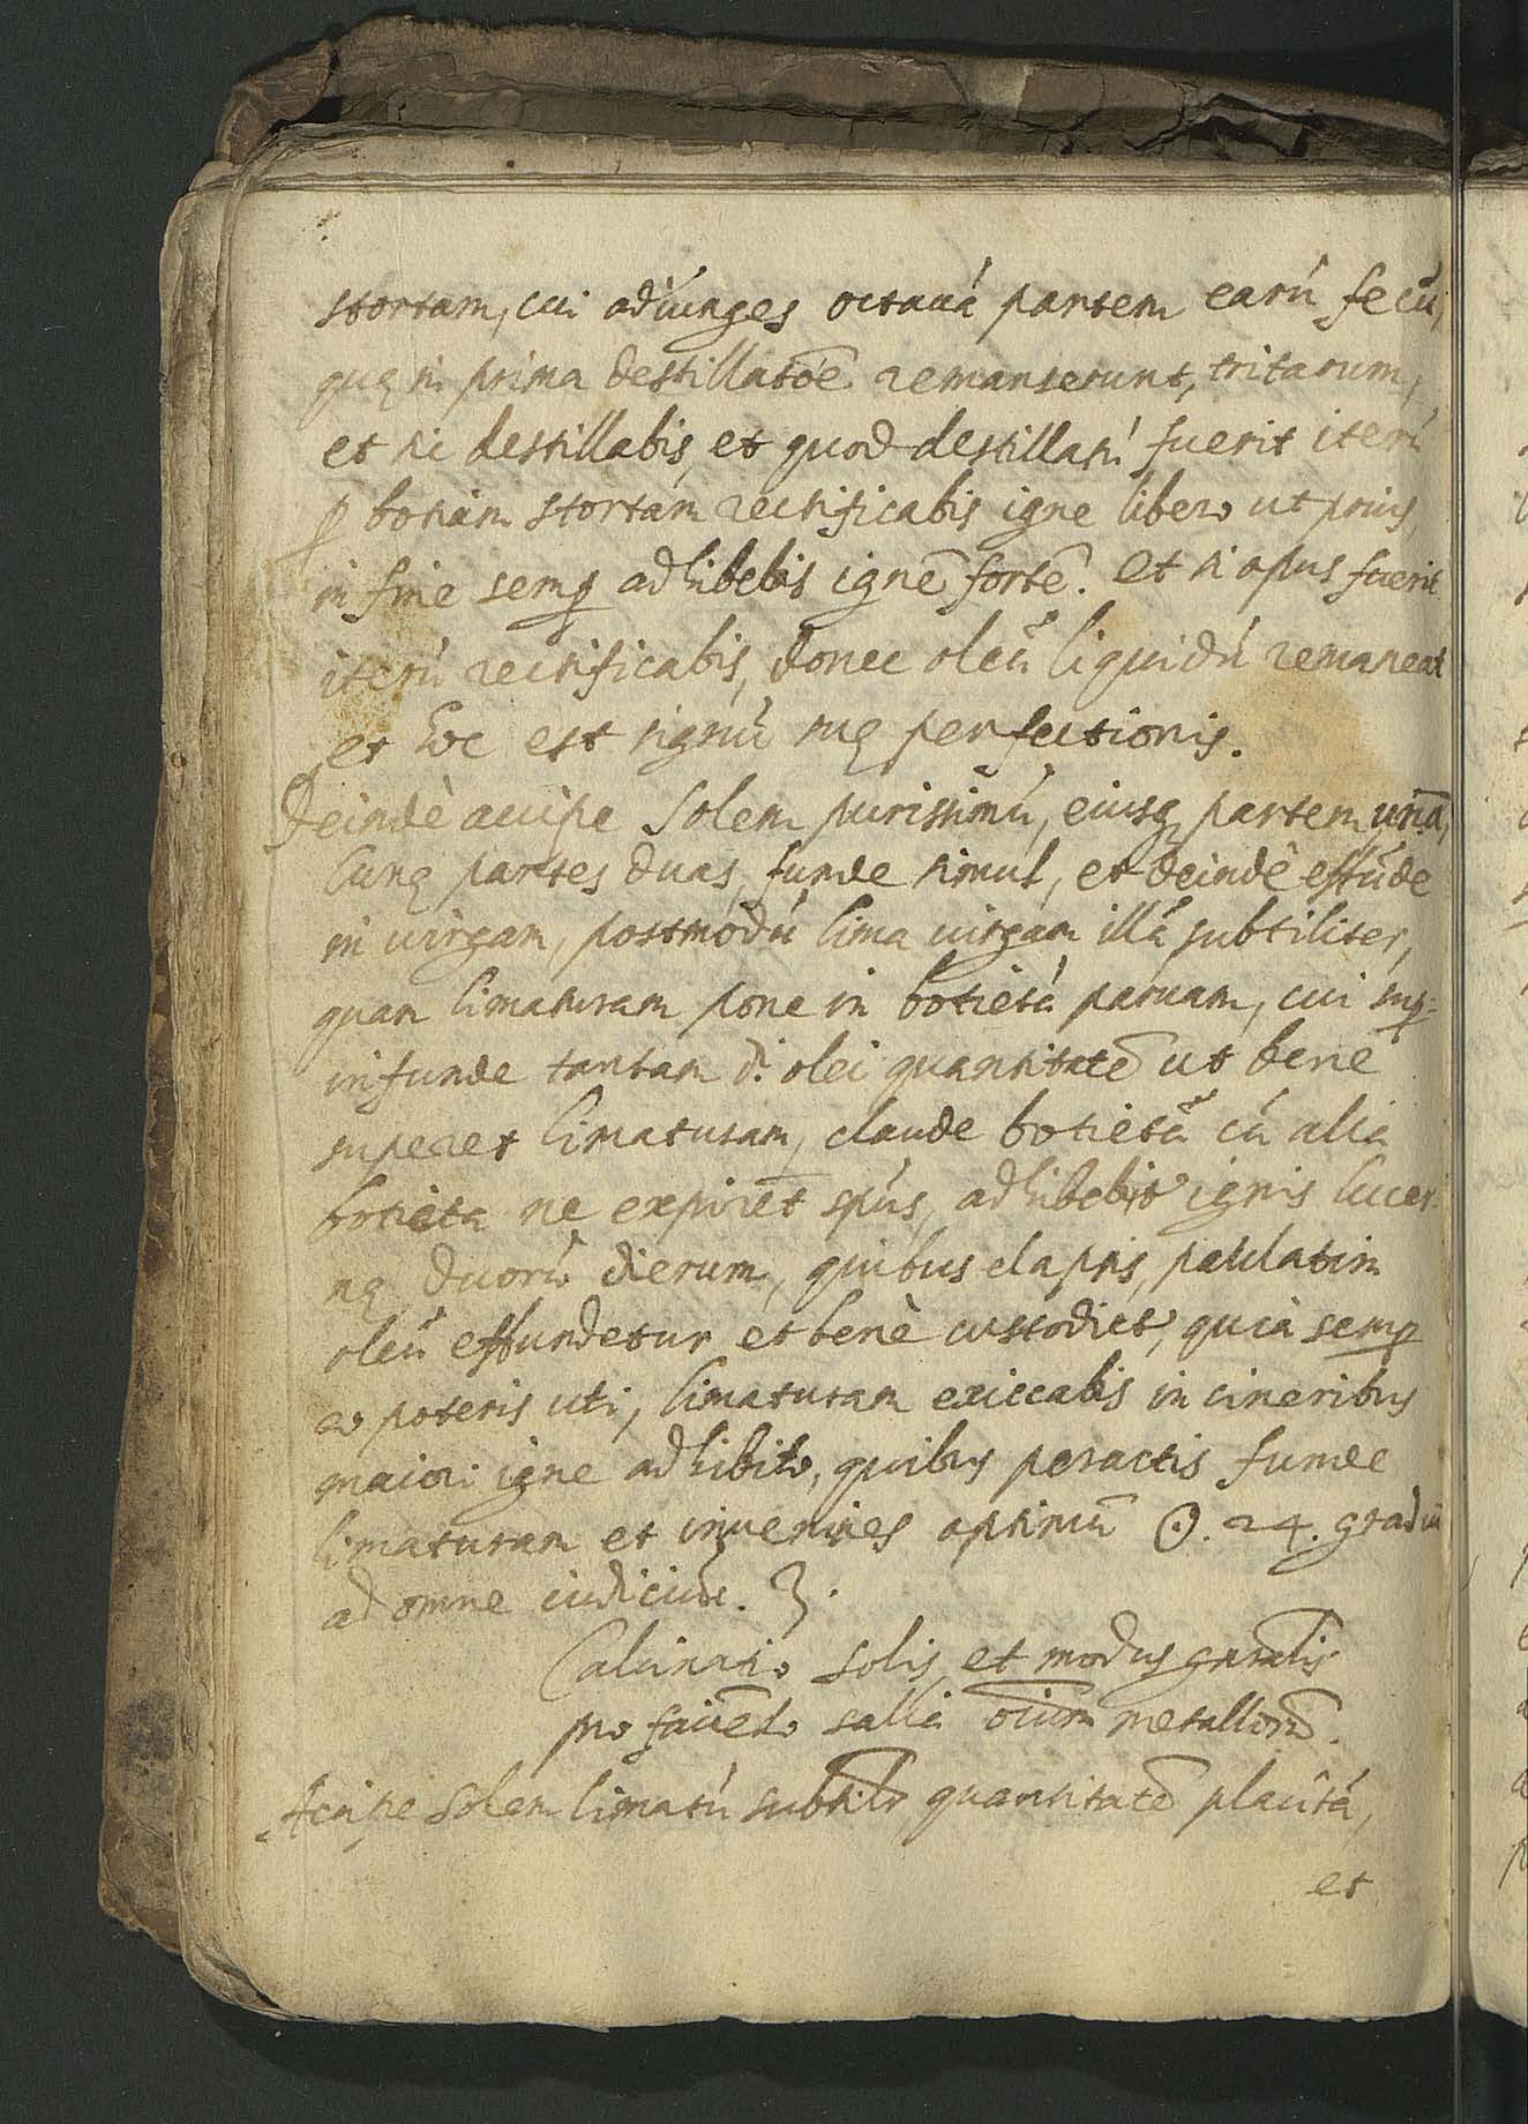 stortam, cui adiunges octauá partem earú fecū,
quę in prima destillatōe remanserunt, tritarum,
et sic destillabis, et quod destillatú fuerit iterú
ꝑ bonam stortam rectificabis igne libero ut prius,
in fine semꝑ adhibebis ignē fortē. et si opus fuerit
iterú rectificabis, donec oleū liquidú remaneat
et hoc est signū suę perfectionis.
Deindè accipe Solem purissimú, eiusq partem unā,
Lunę partes duas, funde simul, et deindè effūde
in uirgam, postmodú lima uirgam illā subtiliter,
quam limaturam pone in botietá paruam, cui suꝑ=
infunde tantam d. olei quantitatē ut benè
superet limaturam, claude botietā cū alia
botieta ne expiret spús, adhibebit ignis lucer
nę duorū dierum, quibus elapsis, paulatim
oleū effundetur et benè custodiet, quia semꝑ
eo poteris uti, limaturam exiccabis in cineribus
maiori igne adhibito, quibus peractis funde
limaturam et inuenies optimū ☉. 24. gradū
ad omne iudicium.
Calcinatio solis, et modus gn̄alis
pro faciēdo salia oīum metallorū.
Accipe Solem limatú subtilr quantitatē placitá,
et